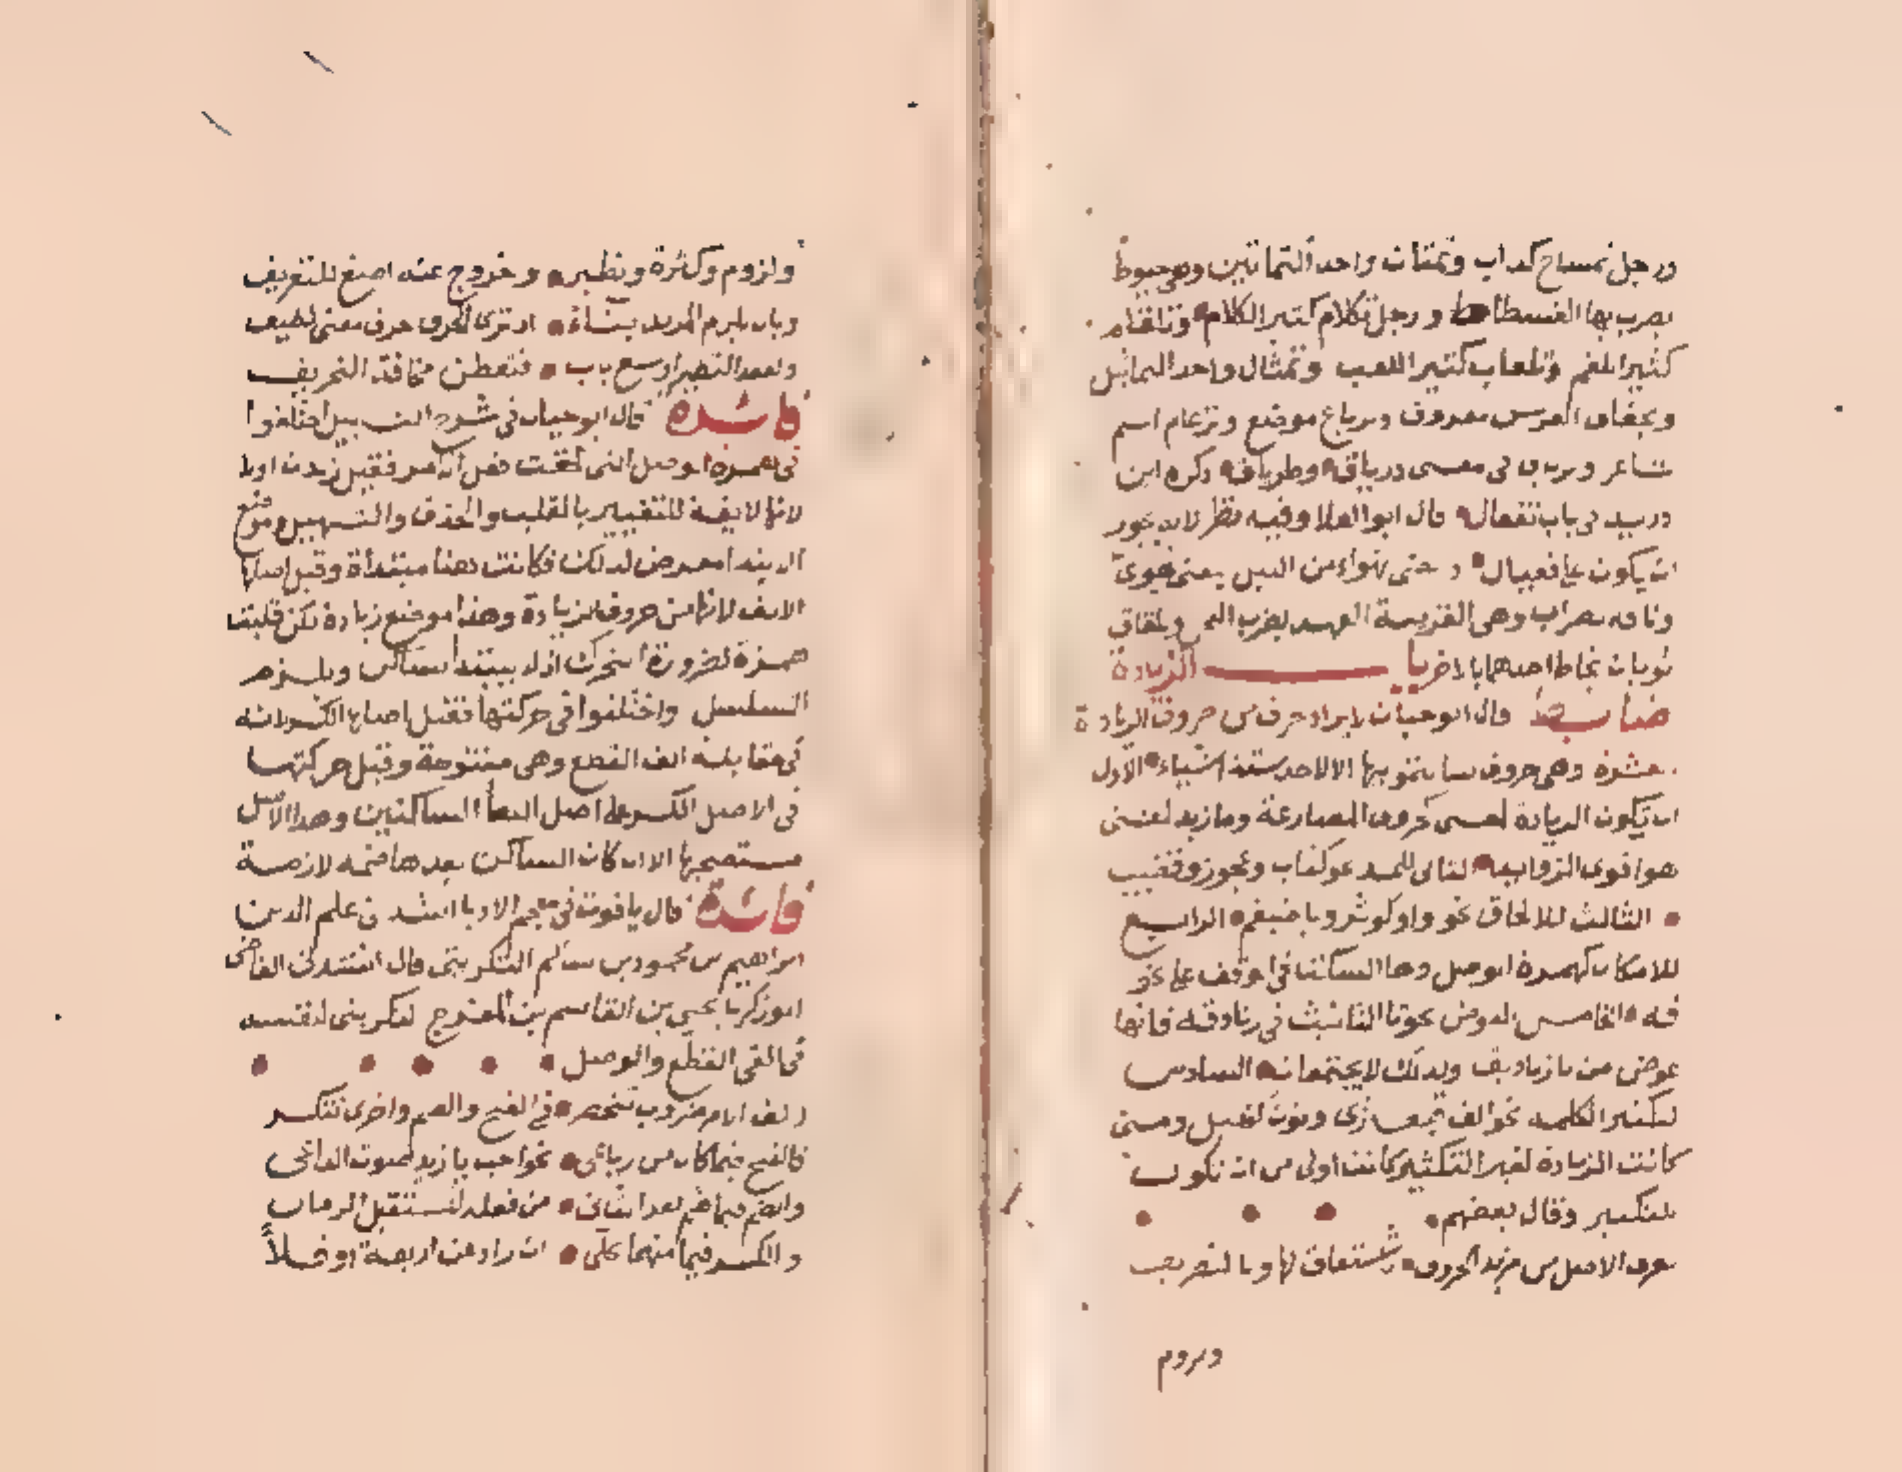 ورجل تمساح كداب وتمتان واحد التماتين وهي خيوط
يضرب بها الفسطاط ورجل تكلام كثير الكلام وتلقام
كثير اللقم وتلعاب كثير اللعب وتمثال واحد التماثيل
وتجفاف الفرس معروف وترباع موضع وتزعام اسم
شاعر وترياق في معنى درياق وطرياق ذكره ابن
دريد في باب تفعال قال ابو العلا وفيه نظر لانه يجوز
ان يكون على فعيال ومضى تهواء من الليل بمعنى هوي
وناقة تضراب وهي القريبة العهد بضرب الفحل وتلفاق
ثوبان يخاط احدهما بالاخر باب الزيادة
ضابط قال ابو حيان لا يزاد حرف من حروف الزيادة
العشرة وهي حروف سالتمونيها الا لاحد ستة اشياء الاول
ان تكون الزيادة لمعنى كحروف المضارعة وما زيد لمعنى
هو اقوى الزوايد الثاني للمد نحو كتاب وعجوز وقضيب
الثالث للالحاق نحو واو كوثر ويا ضيغم الرابع
للامكان كهمزة الوصل وها السكت في الوقف على نحو
قه الخامس العوض نحو تا التانيث في زنادقة فانها
عوض من يا زناديق ولذلك لا يجتمعان السادس
لتكثير الكلمة نحو الف قبعثرى ونون كنهبل ومتى
كانت الزيادة لغير التكثير كانت اولى من ان تكون
للتكثير وقال بعضهم
يعرف الاصل من مزيد الحروف باشتقاق لها وبالتصريف
ولزوم
ولزوم وكثرة ونظير وخروج عنه اصغ للتعريف
وبان يلزم المزيد بناء او ترى الحرف حرف معنى لطيف
ولفقد النظير اوسع باب فتفطن مخافة التحريف
فائدة قال ابو حيان في شرح التسهيل اختلفوا
في همزة الوصل التي لحقت فعل الامر فقيل زيدت اولا
لانها لايقة للتغيير بالقلب والحذف والتسهيل وموضع
الابتدا معرض لذلك فكانت هنا مبتدأة وقيل اصلها
الالف لانها من حروف الزيادة وهذا موضع زيادة لكن قلبت
همزة لضرورة التحرك اذ لا يبتدأ بساكن ويلزم
التسلسل واختلفوا في حركتها فقيل اصلها الكسر لانه
في مقابلة الف القطع وهي مفتوحة وقيل حركتها
في الاصل الكسر على اصل التقاء الساكنين وهذا الاصل
مستصحبها الا ان كان الساكن بعدها ضمه لازمة
فائدة قال ياقوت في معجم الادبا انشدني علم الدين
ابراهيم بن محمود بن سالم التكريتي قال انشدني القاضي
ابو زكريا يحيى بن القاسم بن المفرج التكريتي لنفسه
في الفي القطع والوصل
لالف الامر ضروب تنحصر في الفتح والضم واخرى تنكسر
فالفتح فيما كان من رباعي نحو اجب يا زيد صوت الداعي
والضم فيما ضم بعد الثاني من فعله المستقبل الزمان
والكسر فيما منهما تخلى ان زاد عن اربعة او قلا